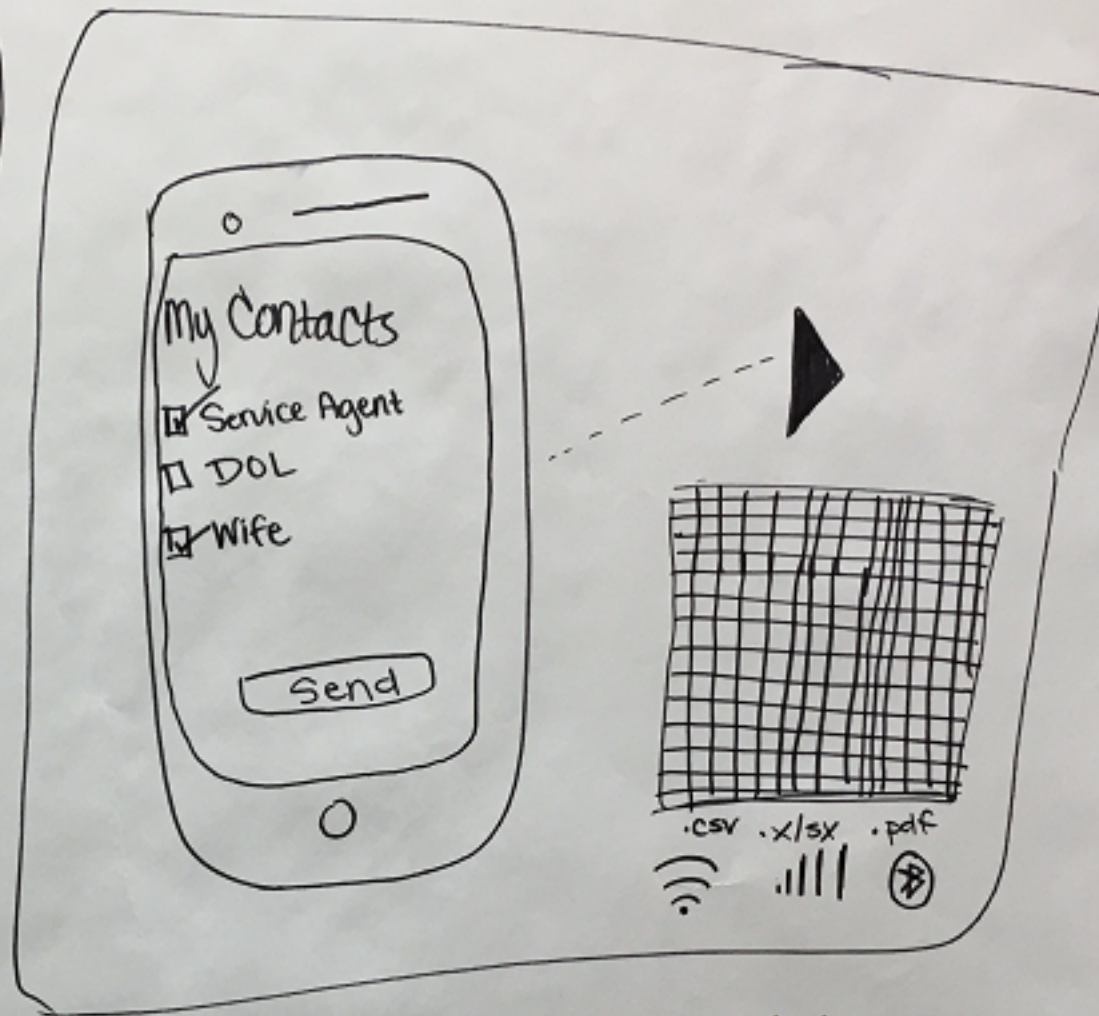 My Contacts
Service Agent
DOL
Wife
Send
.csv .x/sx .pdf